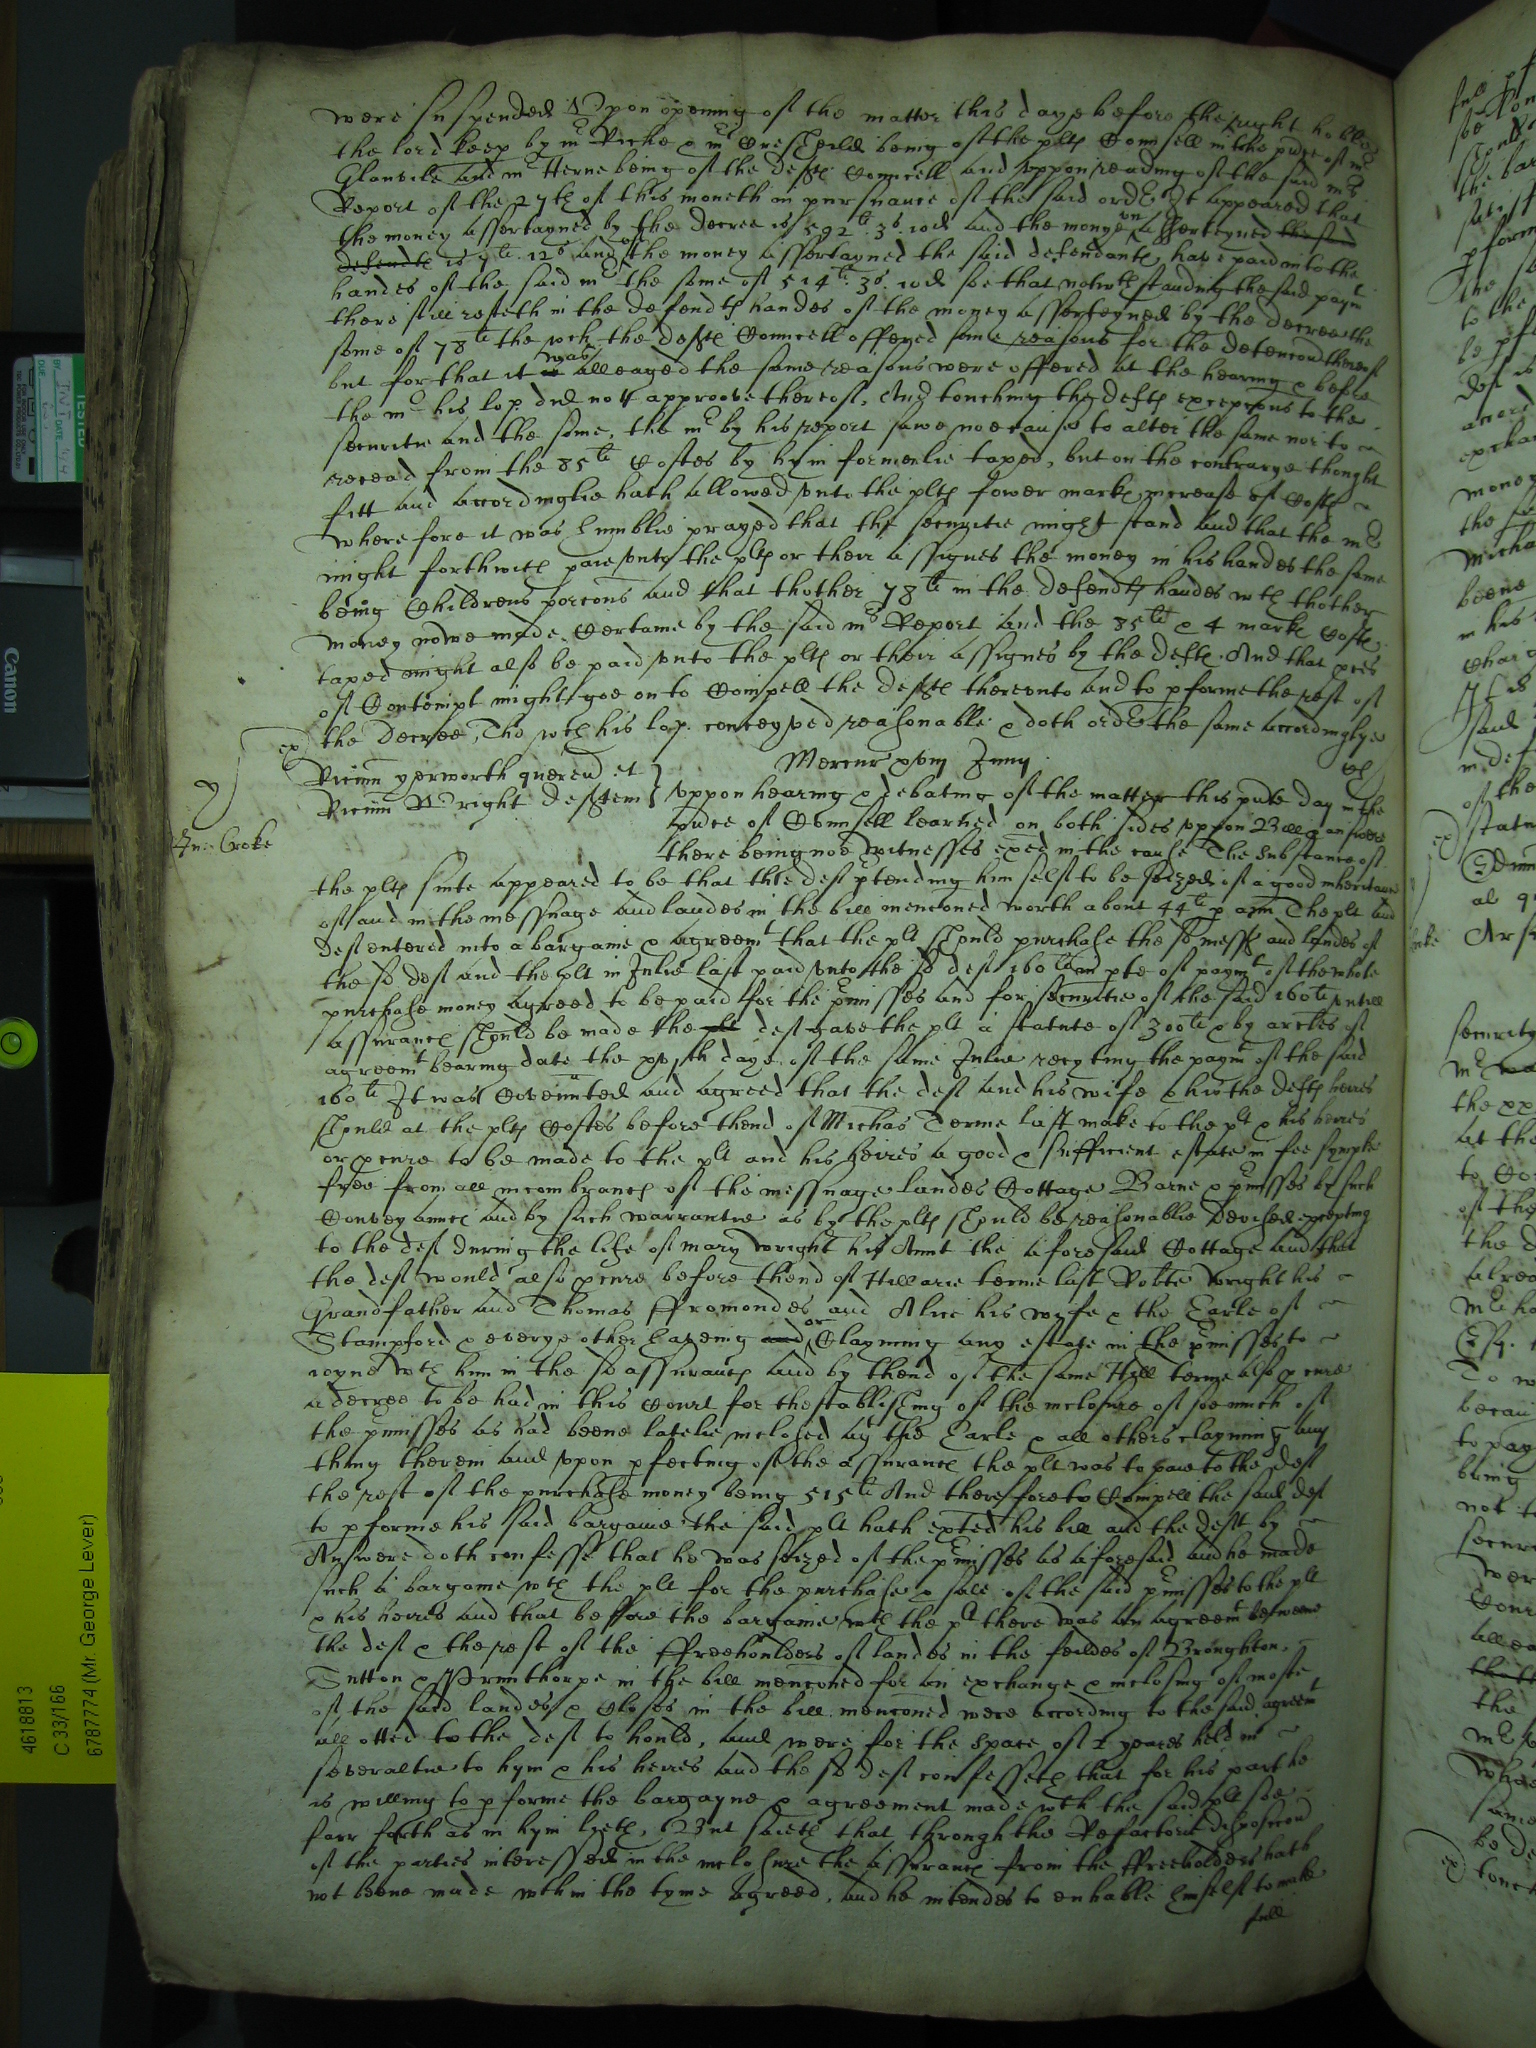 were suspended Vpon opening of the matter this daye before the right ho: ble
the lord keep by mr Riche & mr Crescheild being of the plts Counsell in the pnce of mr
Glanvile and mr Herne being of the defts Councell and vppon reading of the said mrs
Report of the 27th of this moneth in pursuance of the said order It appeared that
the money assertayned by the decree is 592li. 3s. 10d and the monye vn assertayned the said
defendts is 9li. 12s and of the money assertayned the said defendantes have paid into the
handes of the said mr the some of 514li. 3s. 10d soe that notwthstanding the said paymt
there still resteth in the defendts handes of the money asserteyned by the decree the
some of 78li the wch the defts Councell offered some reasons for the detencon thereof
but for that it is was alleaged the same reasons were offered at the hearing & before
the mr his lop. did not approove thereof, And touching the defts excepcons to the
securitie and the some, the mr by his report sawe noe cause to alter the same nor to
recead from the 85li Costes by hym formerlie taxed, but on the contrarye thought
fitt and accordinglie hath allowed vnto the plts fower markes increase of Costs
wherefore it was humblie prayed that the securitie might stand and that the mr
might forthwith paie vnto the plts or their assignes the money in his handes the same
being Childrens porcons and that thother 78li in the defendts handes wth thother
money nowe made Certaine by the said mrs Report and the 85li & 4 markes Costs
taxed might also be paid vnto the plts or their assignes by the defts. And that pces
of Contempt might goe on to Compell the defts therevnto and to pforme the rest of
the decree, The wch his lop. conceyved reasonable & doth order the same accordinglye
ex
Mercur xviij Junij
Ricum yerworth quereud et
Ricum Wright deftem
Jn: Croke
vppon hearing & debating of the matter this pnte day in the
pnce of Counsell learned on both sides vppon Bill & answere
there being noe witnesses exed in the cause The substance of
the plts suite appeared to be that the deft ptending him selfe to be seized of a good inheritance
of and in the messuage and landes in the bill menconed worth about 44li p ann The plt and
deft entered into a bargaine & agreemt that the plt should purchase the sd messe and landes of
the sd deft and the plt in Julie last paid vnto the sd deft 160li in pte of paymt of the whole
purchase money agreed to be paid for the pmisses and for securitie of the said 160li vntill
assurance should be made the plt deft gave the plt a statute of 300li & by artcles of
agreemt bearing date the daye of the same Julie recyting the paymt of the said
160li It was Covennted and agreed that the deft and his wife & his the defts heires
should at the plts Costes before thend of Michas Terme last make to the plt & his heires
or pcure to be made to the plt and his heires a good & sufficient estate in fee symple
free from all incombrances of the messuage landes Cottage Barne & pmisses by such
Conveyance and by such warrantie as by the plts should be reasonablie devised excepting
to the deft during the life of mary wright his Aunt the aforesaid Cottage and that
the deft would also pcure before thend of Hillarie terme last Robte wright his
Grandfather and Thomas ffromondes and Alice his wyfe & the Earle of
Stampford & everye other haveing and or Clayming any estate in the pmisses to
ioyne wth him in the sd assurance and by thend of the same Hill terme also pcure
a decree to be had in this Court for thestablishing of the inclosure of soe much of
the pmisses as had beene latelie inclosed by the Earle & all others clayming any
thing therein and vpon pfecting of the assurance the plt was to paie to the deft
the rest of the purchase money being 515li And therefore to Compell the said deft
to pforme his said bargaine the said plt hath exted his bill and the deft by
Answere doth confesse that he was seized of the pmisses as aforesaid and he made
such a bargaine wth the plt for the purchase & sale of the said pmisses to the plt
& his heires and that before the bargaine wth the plt there was an agreemt betweene
the deft & the rest of the ffreehoulders of landes in the feildes of Broughton,
Sutton & Primthorpe in the bill menconed for an exchange & inclosing of moste
of the said landes & Closes in the bill menconed were according to the said agreemt
allotted to the deft to hould, and were for the space of yeares held in
severaltie to hym & his heires and the sd deft confesseth that for his part he
is willing to pforme the bargayne & agreement made wth the said plt soe
farr forth as in hym lyeth, But saieth that through the Refactorie disposicon
of the parties interessed in the inclosure the assurance from the ffreeholders hath
not beene made wthin the tyme agreed, and he intendes to enhable himselfe to make
full
TESTED
Canon
4618813
C 33/166
6787774 (Mr. George Lever)